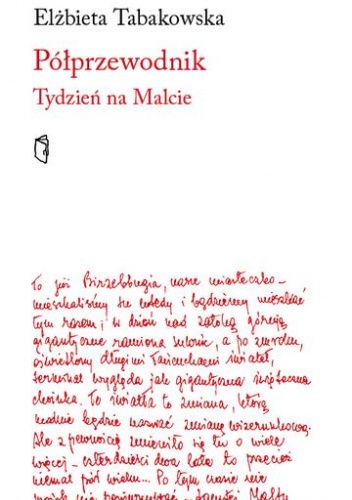 Elżbieta Tabakowska
Półprzewodnik
Tydzień na Malcie
To jest Birżebbugia, nasze miasteczko –
mieszkaliśmy tu wtedy i będziemy mieszkać
tym razem; w dzień nad zatoką górują
gigantyczne ramiona suwnic, a po zmroku,
oświetlony długimi łańcuchami świateł,
terminal wygląda jak gigantyczna świąteczna
choinka. To światła to zmiana, którą
modnie będzie nazwać zmianą wizerunkową.
Ale z pewnością zmieniło się tu o wiele
więcej – czterdzieści dwa lata to przecież
niemal pół wieku... Po tym czasie nie